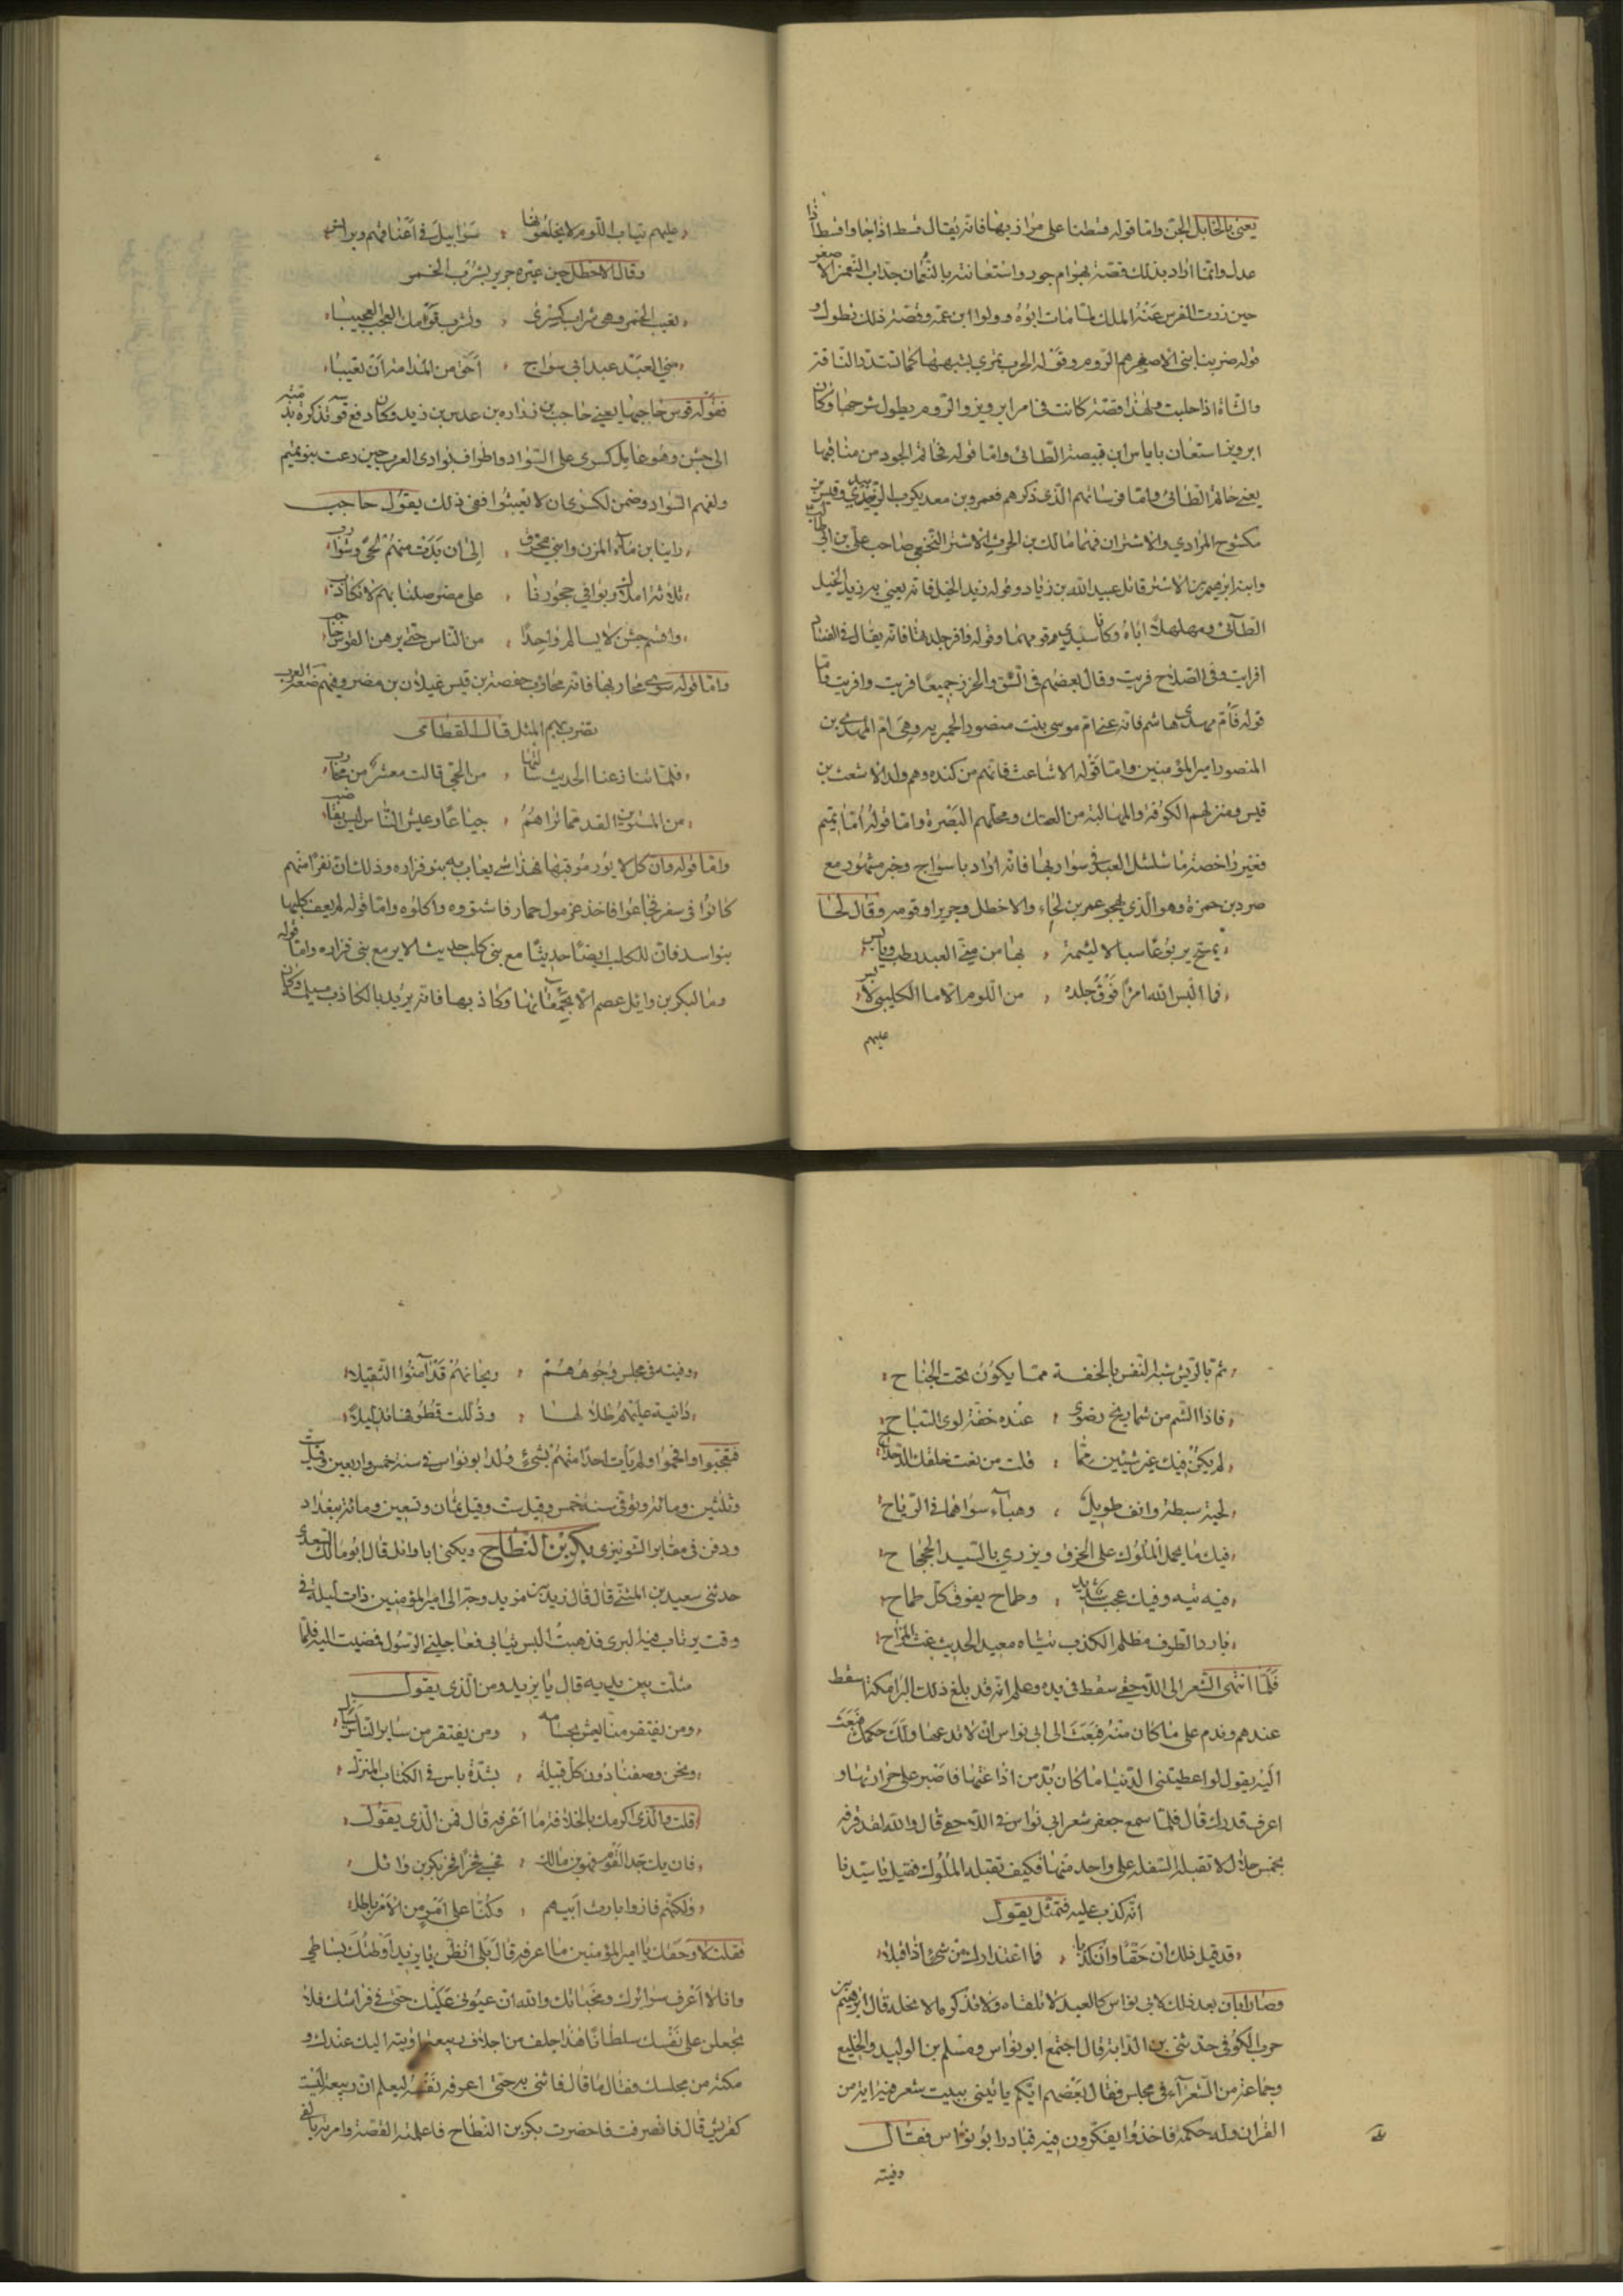 يعني بالخابل الجن واما قوله قسطنا على مراذبها فانه يقال قسط اذا جار واقسط اذا
عدل وانما اراد بذلك قصة بهرام جور واستعانته بالنعمان جد النعمن الاصغر
حين زوت الفرس عنه الملك لما مات ابوه وولوا ابن عمه وقصة ذلك تطول و
قوله ضربنا بني الاصفر هم الروم وقوله الحرب تمري يشبهها كما تستدر الناقة
والشاة اذا حلبت ولهذا قصة كانت في امر ابرويز والروم يطول شرحها وكان
ابرويز استعان باياس ابن قبيصة الطائي واما قوله نخاتم الجود من مناقبها
يعني حاتم الطائي واما فرسانهم الذي ذكرهم فعمرو بن معد يكرب الزبيدي وقيس بن
مكشوح المرادي والاشتران فهما مالك بن الحرث الاشتر النخعي صاحب علي بن ابي طالب
وابنه ابرهيم بن الاشتر قاتل عبيد الله بن زياد وقوله زيد الخيل فانه يعني به زيد الخيل
الطائي ومهلهلا اباه وكانا سيدي قومهما وقوله وافر جلدتها فانه يقال في الفساد
افريت وفي الصلاح فريت وقال بعضهم في الشق والخرز جميعا فريت وافريت واما
قوله فام مهدي هاشم فانه عني ام موسى بنت منصور الحميريه وهي ام المهدي بن
المنصور امير المؤمنين واما قوله الاشاعث فانهم من كنده وهم ولد الاشعث بن
قيس ومنزلهم الكوفة والمهالبة من العتك ومحلهم البصرة واما قوله اما تميم
فغير راحضة ما شلشل العبد في سواربها فانه اراد با سواج وخبر مشهور مع
صرد بن حمزة وهو الذي يهجو عمر بن لجاء والاخطل وجريرا وقومه وقال لها
تمسح يربوعا سبالا لئيمة ، بها من مني العبد رطب ويابس
فما البس الله امرأ فوق جلده ، من اللوم الا ما الكليبي لابس
عليهم
عليهم ثياب اللوم لا يخلعونها ، سرابيل في اعناقهم وبرانس
وقال الاخطل حين عيره جرير بشرب الخمر
تعيب الخمر وهي شراب كسرى ، وتشرب قومك العجب العجيبا
مني العبد عبد ابي سواج ، احق من المدامة ان تعيبا
فقوله قوس حاجبها يعني حاجب بن زراره بن عدس بن زيد وكان دفع قوسه
الى جشن وهو عامل كسرى على السواد واطراف بوادي العرب حين دعت بنو تميم
ولفهم السواد وضمن لكسرى ان لا تعيثوا ففي ذلك يقول حاجب
راينا بن ماء المزن وابني محرق ، الى ان بدت منهم لحى وشوارب
ثلاثة املاك ربوا في حجورنا ، على مضر صلنا بهم لا نكاذب
واقسم جشن لا يسالم واحدا ، من الناس حتى يرهن القوس حاجب
واما قوله سوى محاربها فانه محارب خصفة بن قيس غيلان بن مضر وفيهم ضعف العرب
تضرب بهم المثل قال القطامي
فلما تنازعنا الحديث سالتها ، من الحي قالت معشر من محارب
من المشتوين القد مما تراهم ، جياعا وعيش الناس ليس بناضب
واما قوله وان كل لا يور موقبها فهذا شي يعاب به بنو فزاره وذلك ان نفرا منهم
كانوا في سفر فجاعوا فاخذ غرمول حمار فاشتوه واكلوه واما قوله لم يعف كلبها
بنو اسد فان للكلب ايضا حديثا مع بني كلب حديث الاير مع بني فزاره واما قوله
وما لبكر بن وايل عصم الا بحمقائها وكاذبها فانه يريد بالكاذب مسيلمة وكان
ثم بالريش شبه النفس بالخفة مما يكون تحت الجناح
فاذا الشم من شماريخ رضوى ، عنده خفة لوى السباح
لم يكن فيك غير شيئين مما ، قلت من نعت خلقك الدحداح
لحية سبطة وانف طويل ، وهباء سواهما في الرياح
فيك ما يحمل الملوك على الخرق ويزري بالسيد الجحجاح
فيه تيه وفيك عجب شديد ، وطماح يفوق كل طماح
بارد الطرف مظلم الكذب تياه معيد الحديث غث المزاح
فلما انتهى الشعر الى اللاحقي سقط في يده وعلم انه قد بلغ ذلك البرامكة سقط
عندهم وندم على ما كان منه فبعث الى ابي نواس ان لا تدعها ولك حكمك فبعث
اليه يقول لو اعطيتني الدنيا ما كان بد من اذاعتها فاصبر على حرارتها و
اعرف قدرك قال فلما سمع جعفر شعر ابي نواس في اللاحقي قال والله لقد قرفه
بخمس خلال لا تقبله السفلة على واحد منها فكيف تقبله الملوك فقيل يا سيدنا
انه كذب عليه فتمثل يقول
قد قيل ذلك ان حقا وان كذبا ، فما اعتذارك من شي اذا قيلا
وصار ابان بعد ذلك لابي نواس كالعبد لا تلقاه ولا تذكره الا بجله قال ابرهيم بن
حرب الكوفي حدثني بن الداية قال اجتمع ابو نواس ومسلم بن الوليد والخليع
وجماعة من الشعراء في مجلس فقال بعضهم ايكم ياتيني ببيت شعر فيه اية من
القران وله حكمه فاخذوا يفكرون فيه فبادر ابو نواس فقال
وفتية
وفتية في مجلس وجوههم ، ريحانهم قد آمنوا التثقيلا
دانية عليهم ظلالها ، وذللت قطوفها تذليلا
فتعجبوا وافحموا ولم يات احدا منهم بشيء ولد ابو نواس في سنة خمس واربعين وقيل ست
وثلثين ومائة وتوفي سنة خمس وقيل ست وقيل ثمان وتسعين ومائة ببغداد
ودفن في مقابر الشونيزي بكر بن النطاح ويكنى ابا وائل قال ابو مالك السعدي
حدثني سعيد بن المثنى قال قال يزيد بن مزيد وجه الي امير المؤمنين ذات ليلة في
وقت يرتاب فيه البرى فذهبت البس ثيابي فعاجلني الرسول فمضيت اليه فلما
مثلت بين يديه قال يا يزيد ومن الذي يقول
ومن يفتقر منا يعش بحسامه ، ومن يفتقر من سائر الناس يسال
ونحن وصفنا دون كل قبيلة ، بشدة باس في الكتاب المنزل
قلت والذي اكرمك بالخلافة ما اعرفه قال فمن الذي يقول
فان يك جد القوم فهر بن مالك ، فحسبي فخرا فخر بكر بن وائل
ولكنهم فازوا بارث ابيهم ، وكنا على امر من الامر باطل
فقلت لا وحقك يا امير المؤمنين ما اعرفه قال بلى اتظن يا يزيد اذ وطئتك بساطي
وانا لا اعرف سوائرك ومخباتك والله ان عيوني عليك حتى في فراشك فلا
تجعلن على نفسك سلطانا هذا جلف من اجلاف ربيعة اويته اليك عندك و
مكنته من مجلسك فقال ما قال فاتني به حتى اعرفه نفسه ليعلم ان ربيعة ليست
كقريش قال فانصرفت فاحضرت بكر بن النطاح فاعلمته القصة وامرته بالفي